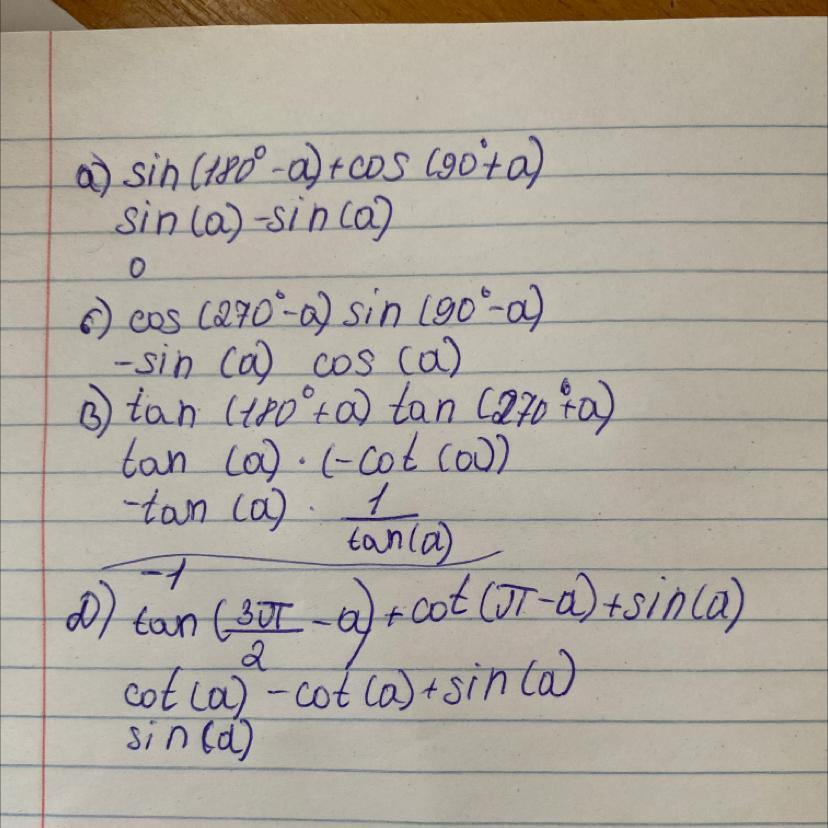 а) sin(180° - a) + cos (90° + a)
sin(a) - sin(a)
0
б) cos (270° - a) sin (90° - a)
- sin (a) cos (a)
В) tan (180° + a) tan (270° + a)
tan (a) · (-cot (a))
-tan (a) · 1/tan(a)
-1
Д) tan (3π/2 - a) + cot (π - a) + sin(a)
cot(a) - cot(a) + sin(a)
sin(a)